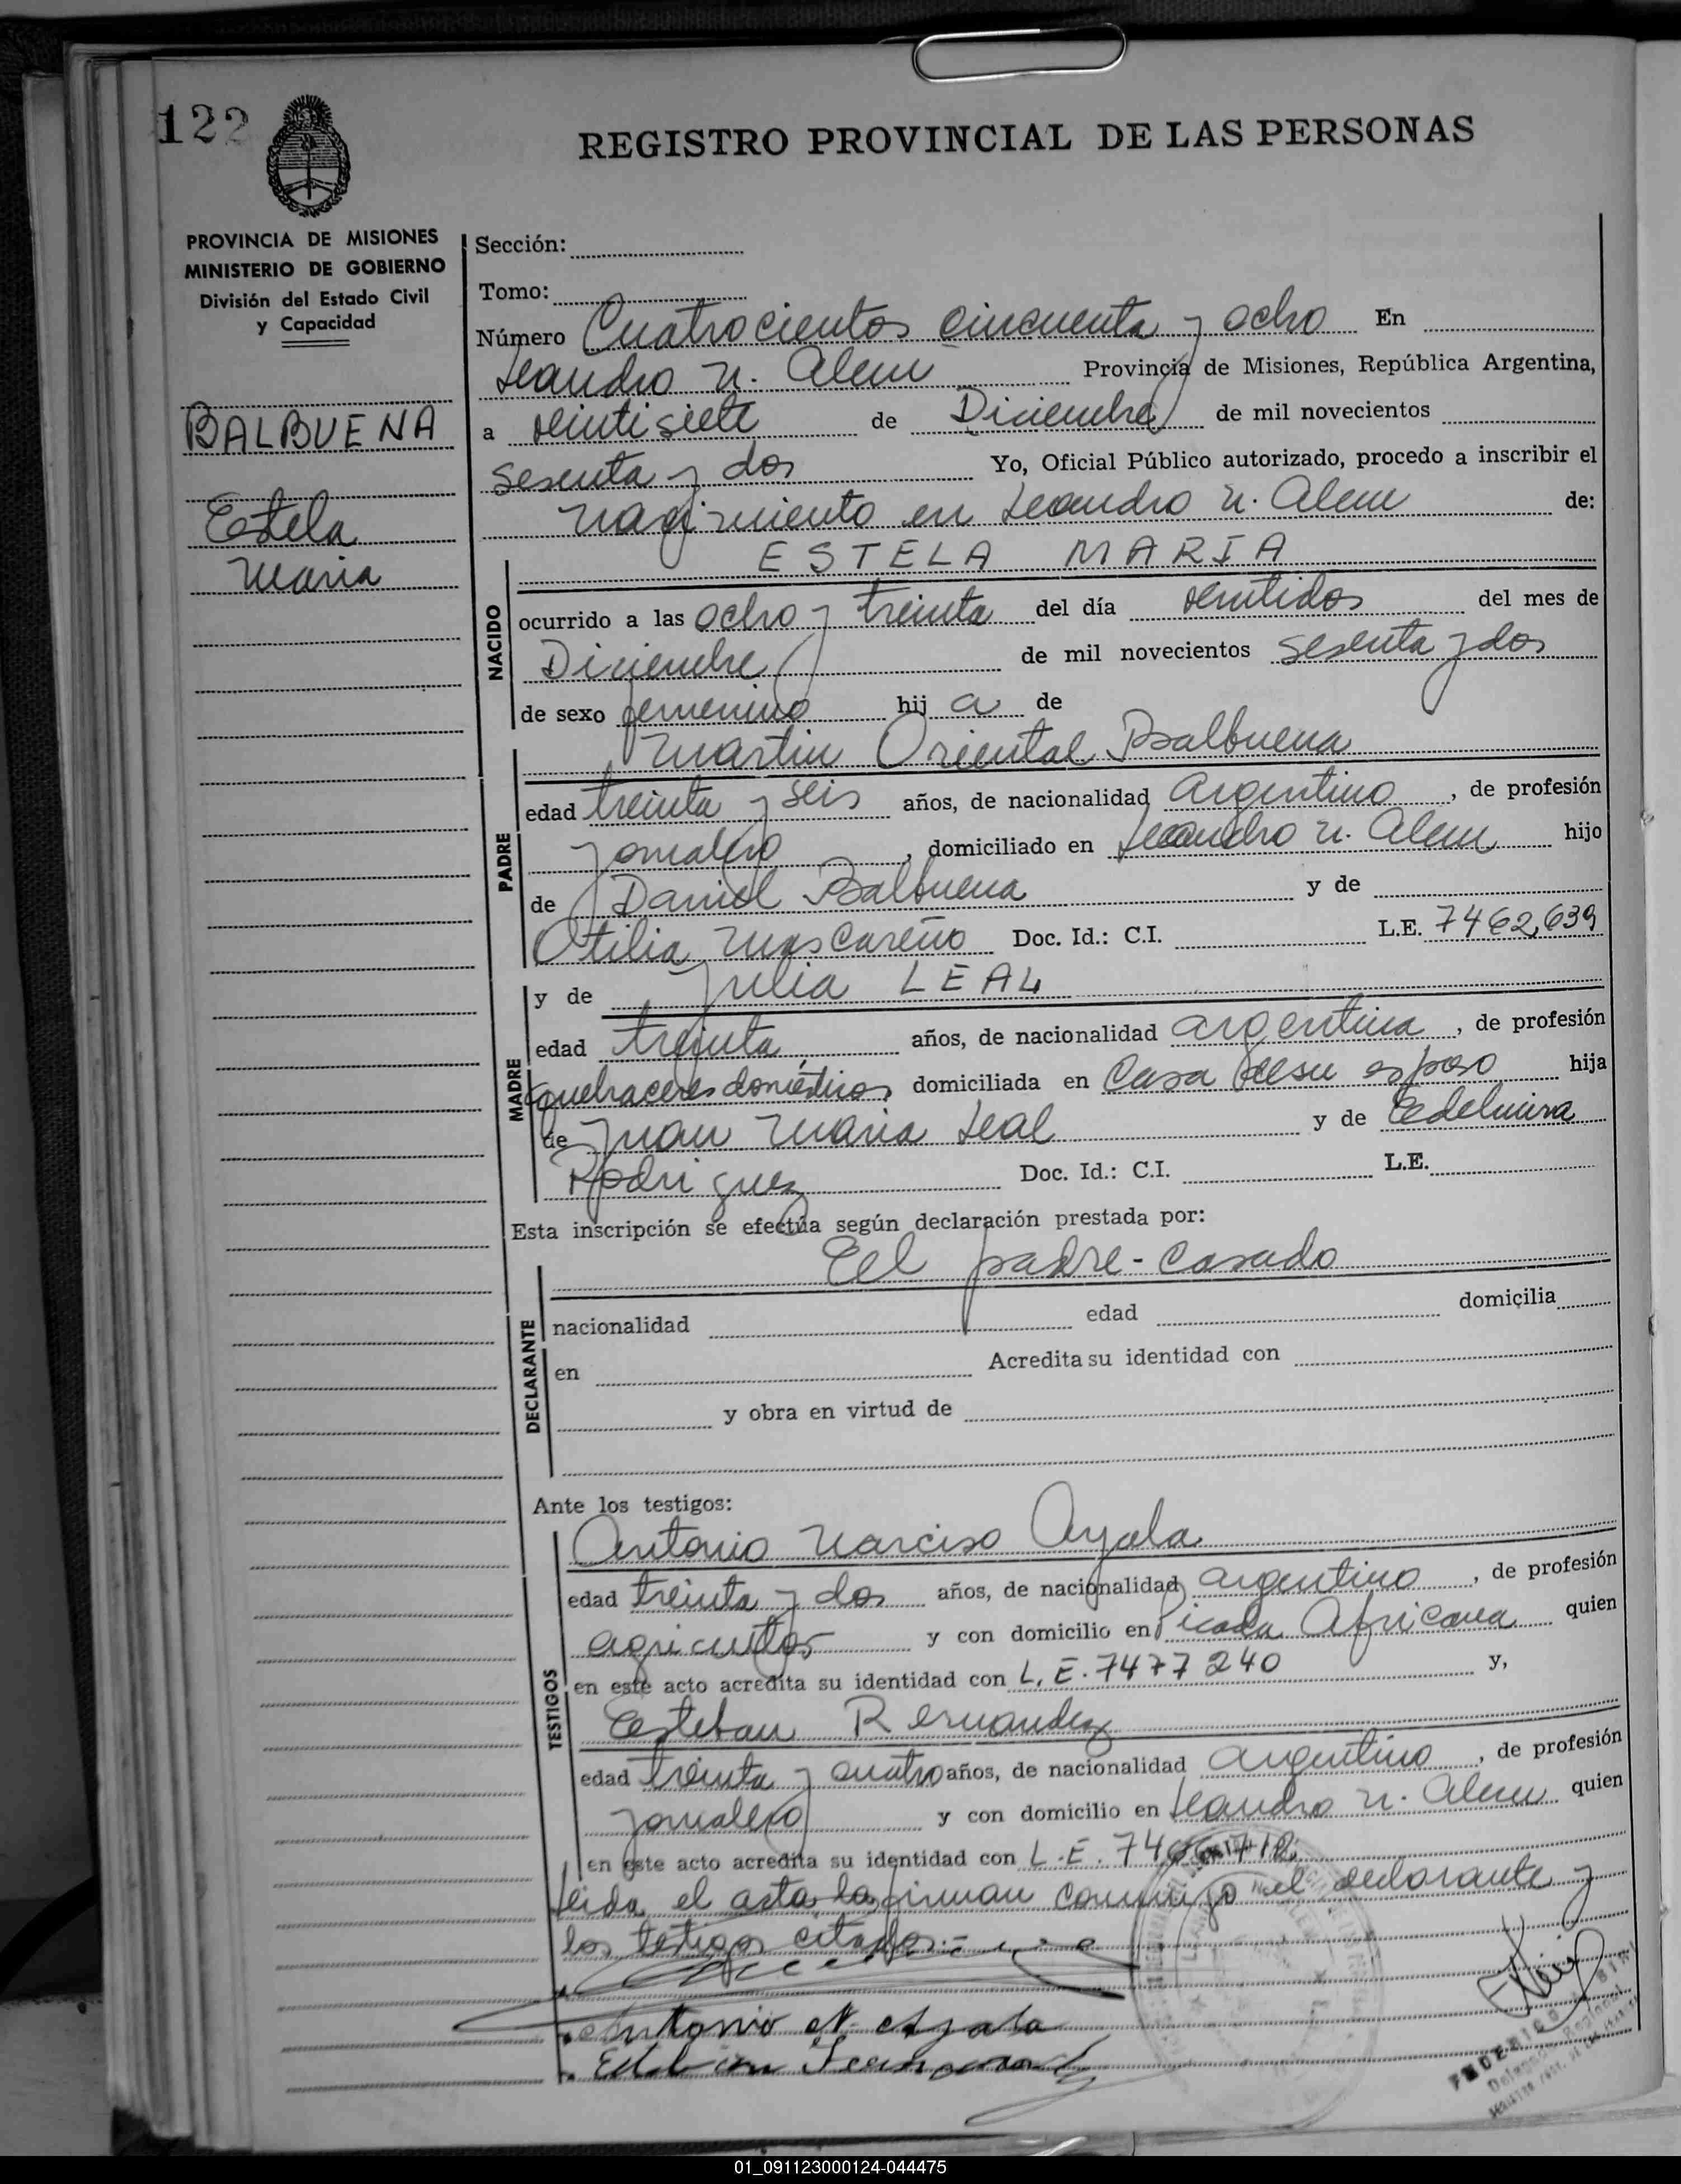 122
REGISTRO PROVINCIAL DE LAS PERSONAS
PROVINCIA DE MISIONES
MINISTERIO DE GOBIERNO
División del Estado Civil
y Capacidad
BALBUENA
Estela
Maria
Sección:
Tomo:
Número Cuatrocientos cincuenta y ocho En
Leandro N. Alem Provincia de Misiones, República Argentina,
a veintisiete de Diciembre de mil novecientos
sesenta y dos Yo, Oficial Público autorizado, procedo a inscribir el
nacimiento en Leandro N. Alem de:
ESTELA MARIA
NACIDO
ocurrido a las ocho y treinta del día veintidos del mes de
Diciembre de mil novecientos sesenta y dos
de sexo femenino hij a de
Martin Oriental Balbuena
PADRE
edad treinta y seis años, de nacionalidad argentino, de profesión
jornalero, domiciliado en Leandro N. Alem hijo
de Daniel Balbuena y de
Otilia Mascareño Doc. Id.: C.I. L.E. 7462,639
y de Julia LEAL
MADRE
edad treinta años, de nacionalidad argentina, de profesión
quehaceres domésticos, domiciliada en Casa de su esposo hija
de Juan Maria Leal y de Edelmira
Rodriguez Doc. Id.: C.I. L.E.
Esta inscripción se efectúa según declaración prestada por:
El padre - casado
DECLARANTE
nacionalidad edad domicilia
en Acredita su identidad con
y obra en virtud de
Ante los testigos:
TESTIGOS
Antonio Narciso Ayala
edad treinta y dos años, de nacionalidad argentino, de profesión
agricultor y con domicilio en Picada Africana quien
en este acto acredita su identidad con L.E. 7477240 y,
Esteban
edad treinta y cuatro años, de nacionalidad argentino, de profesión
jornalero y con domicilio en Leandro N. Alem quien
en este acto acredita su identidad con L.E.
Leida el acta la firman conmigo el declarante y
los testigos citados.-
Antonio N. Ayala
FEDERICO
01_091123000124-044475